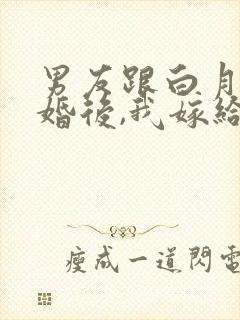 男友跟白月
婚後,我嫁給
瘦成一道閃電